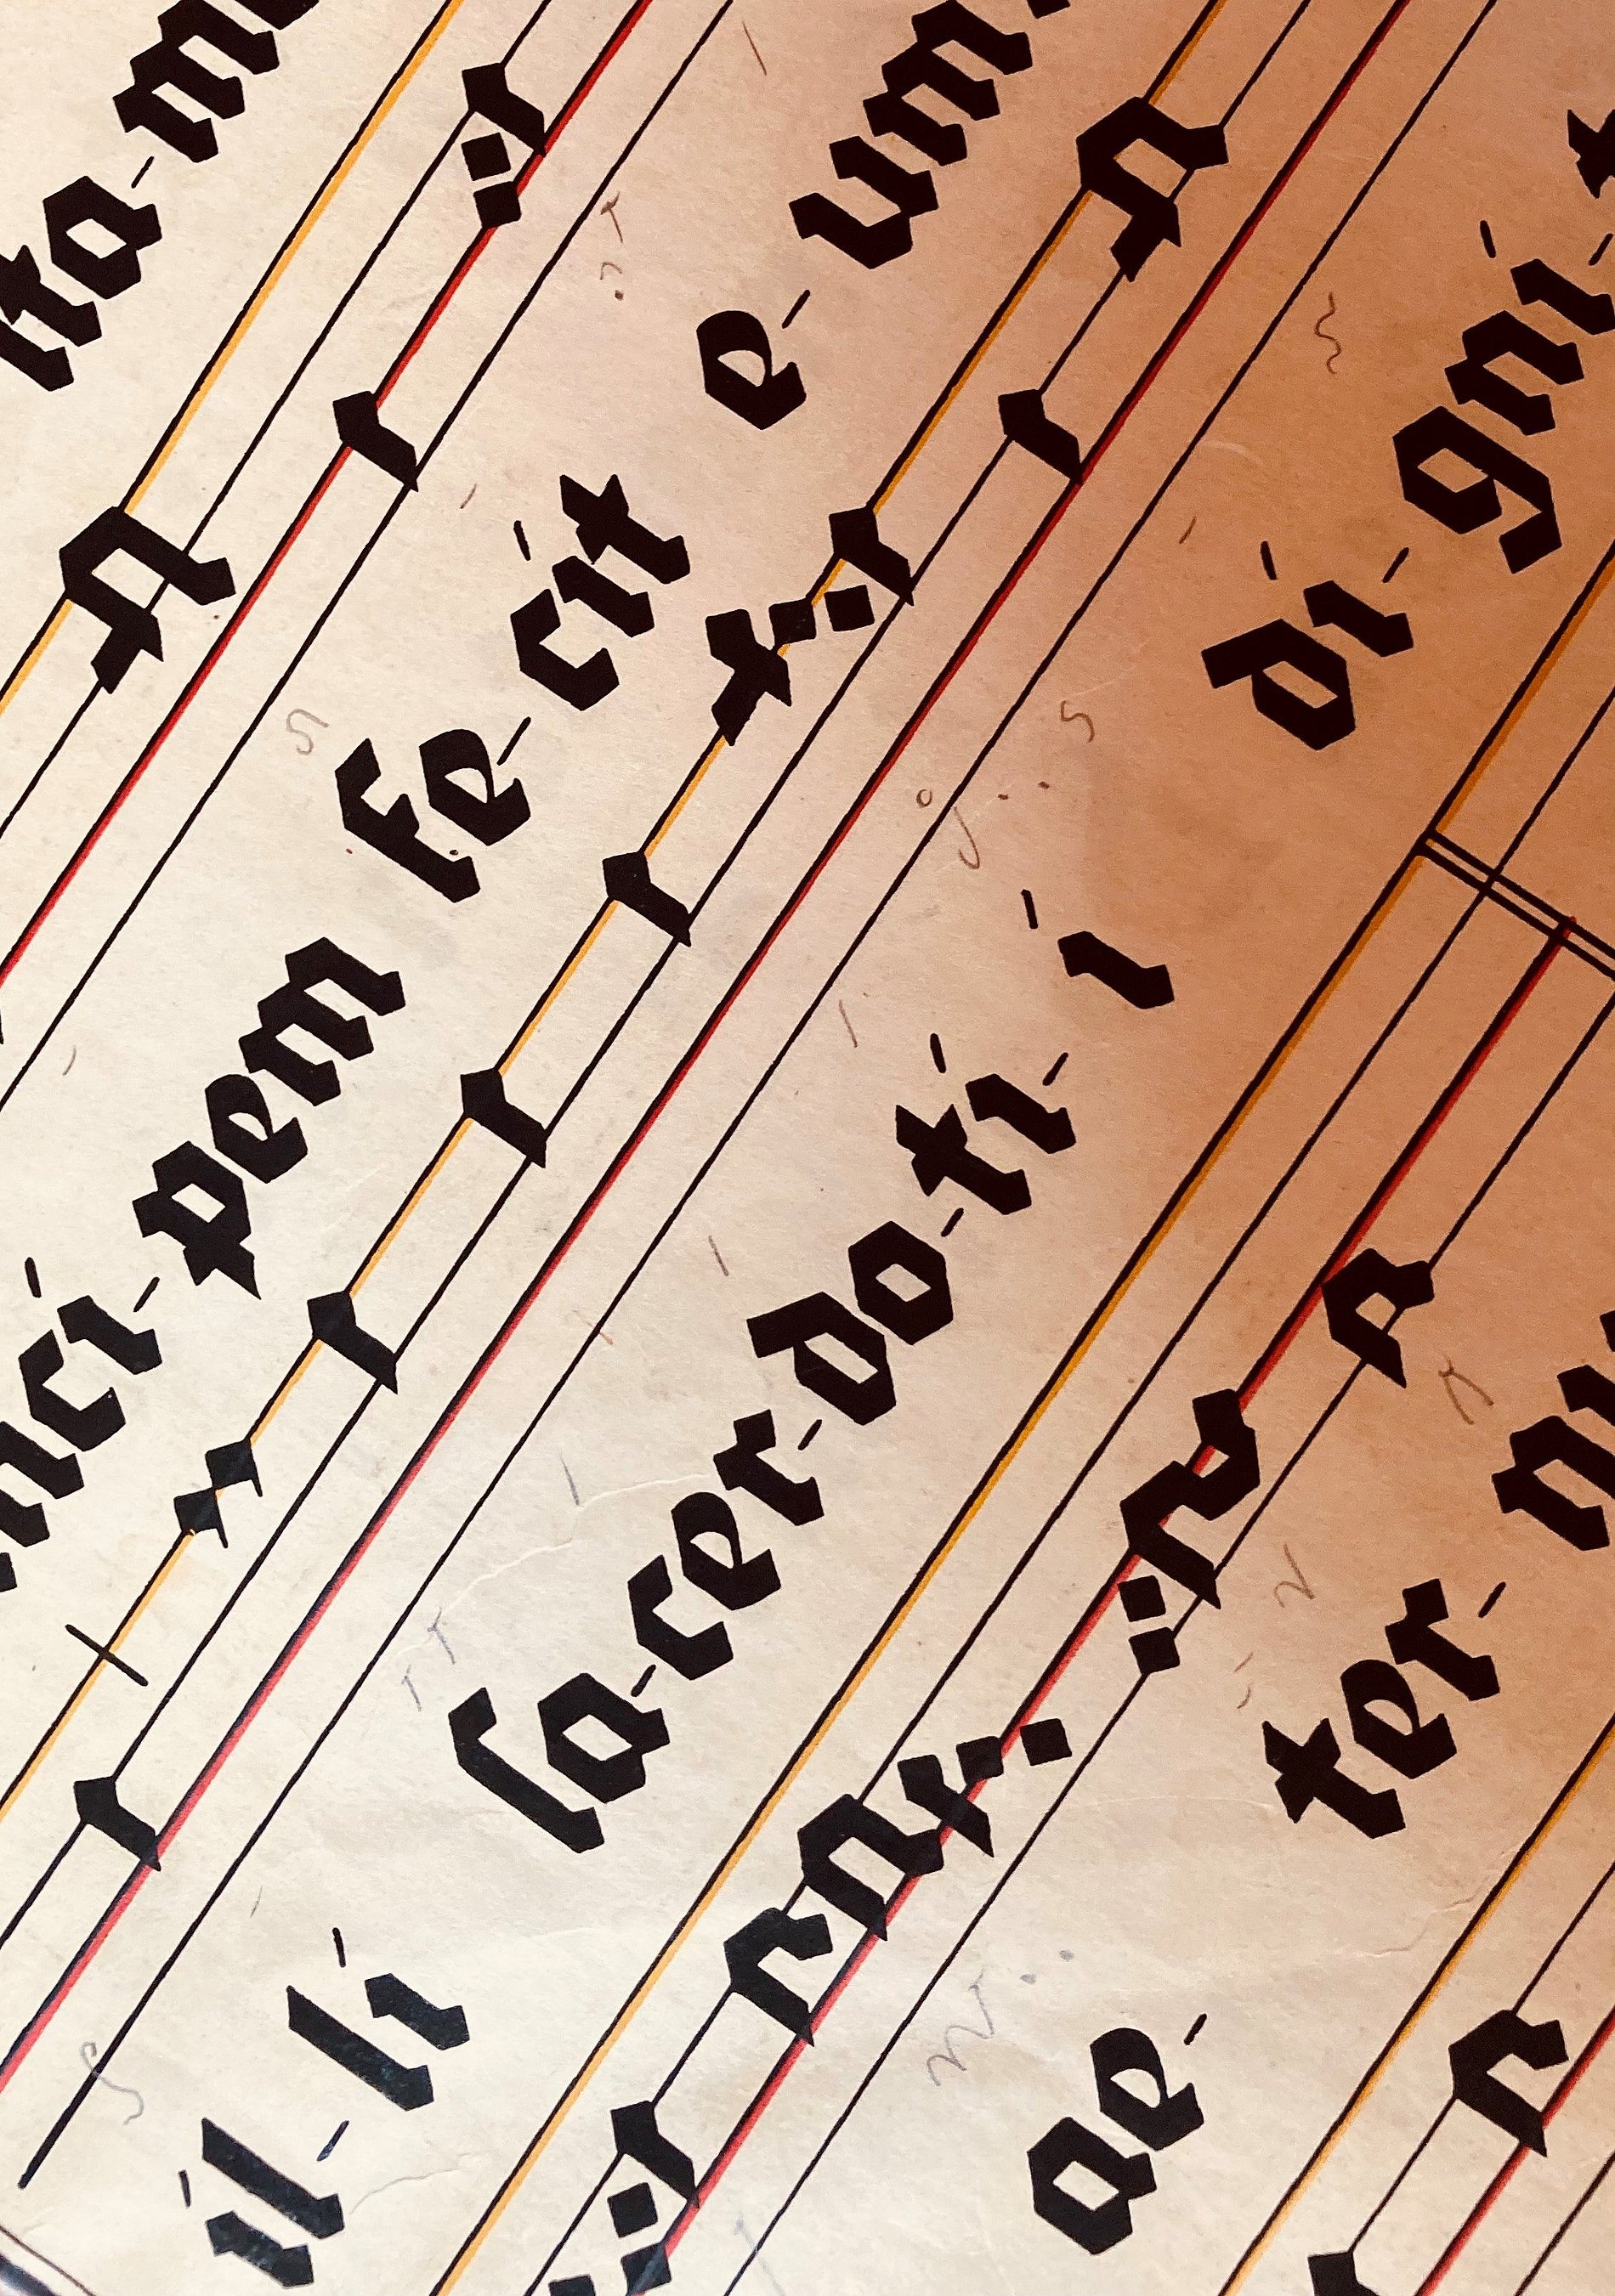 ſta-m
nci-pem fe-cit e-um
il-li ſa-cer-do-ti-i di-gni-t
ae-ter-nu